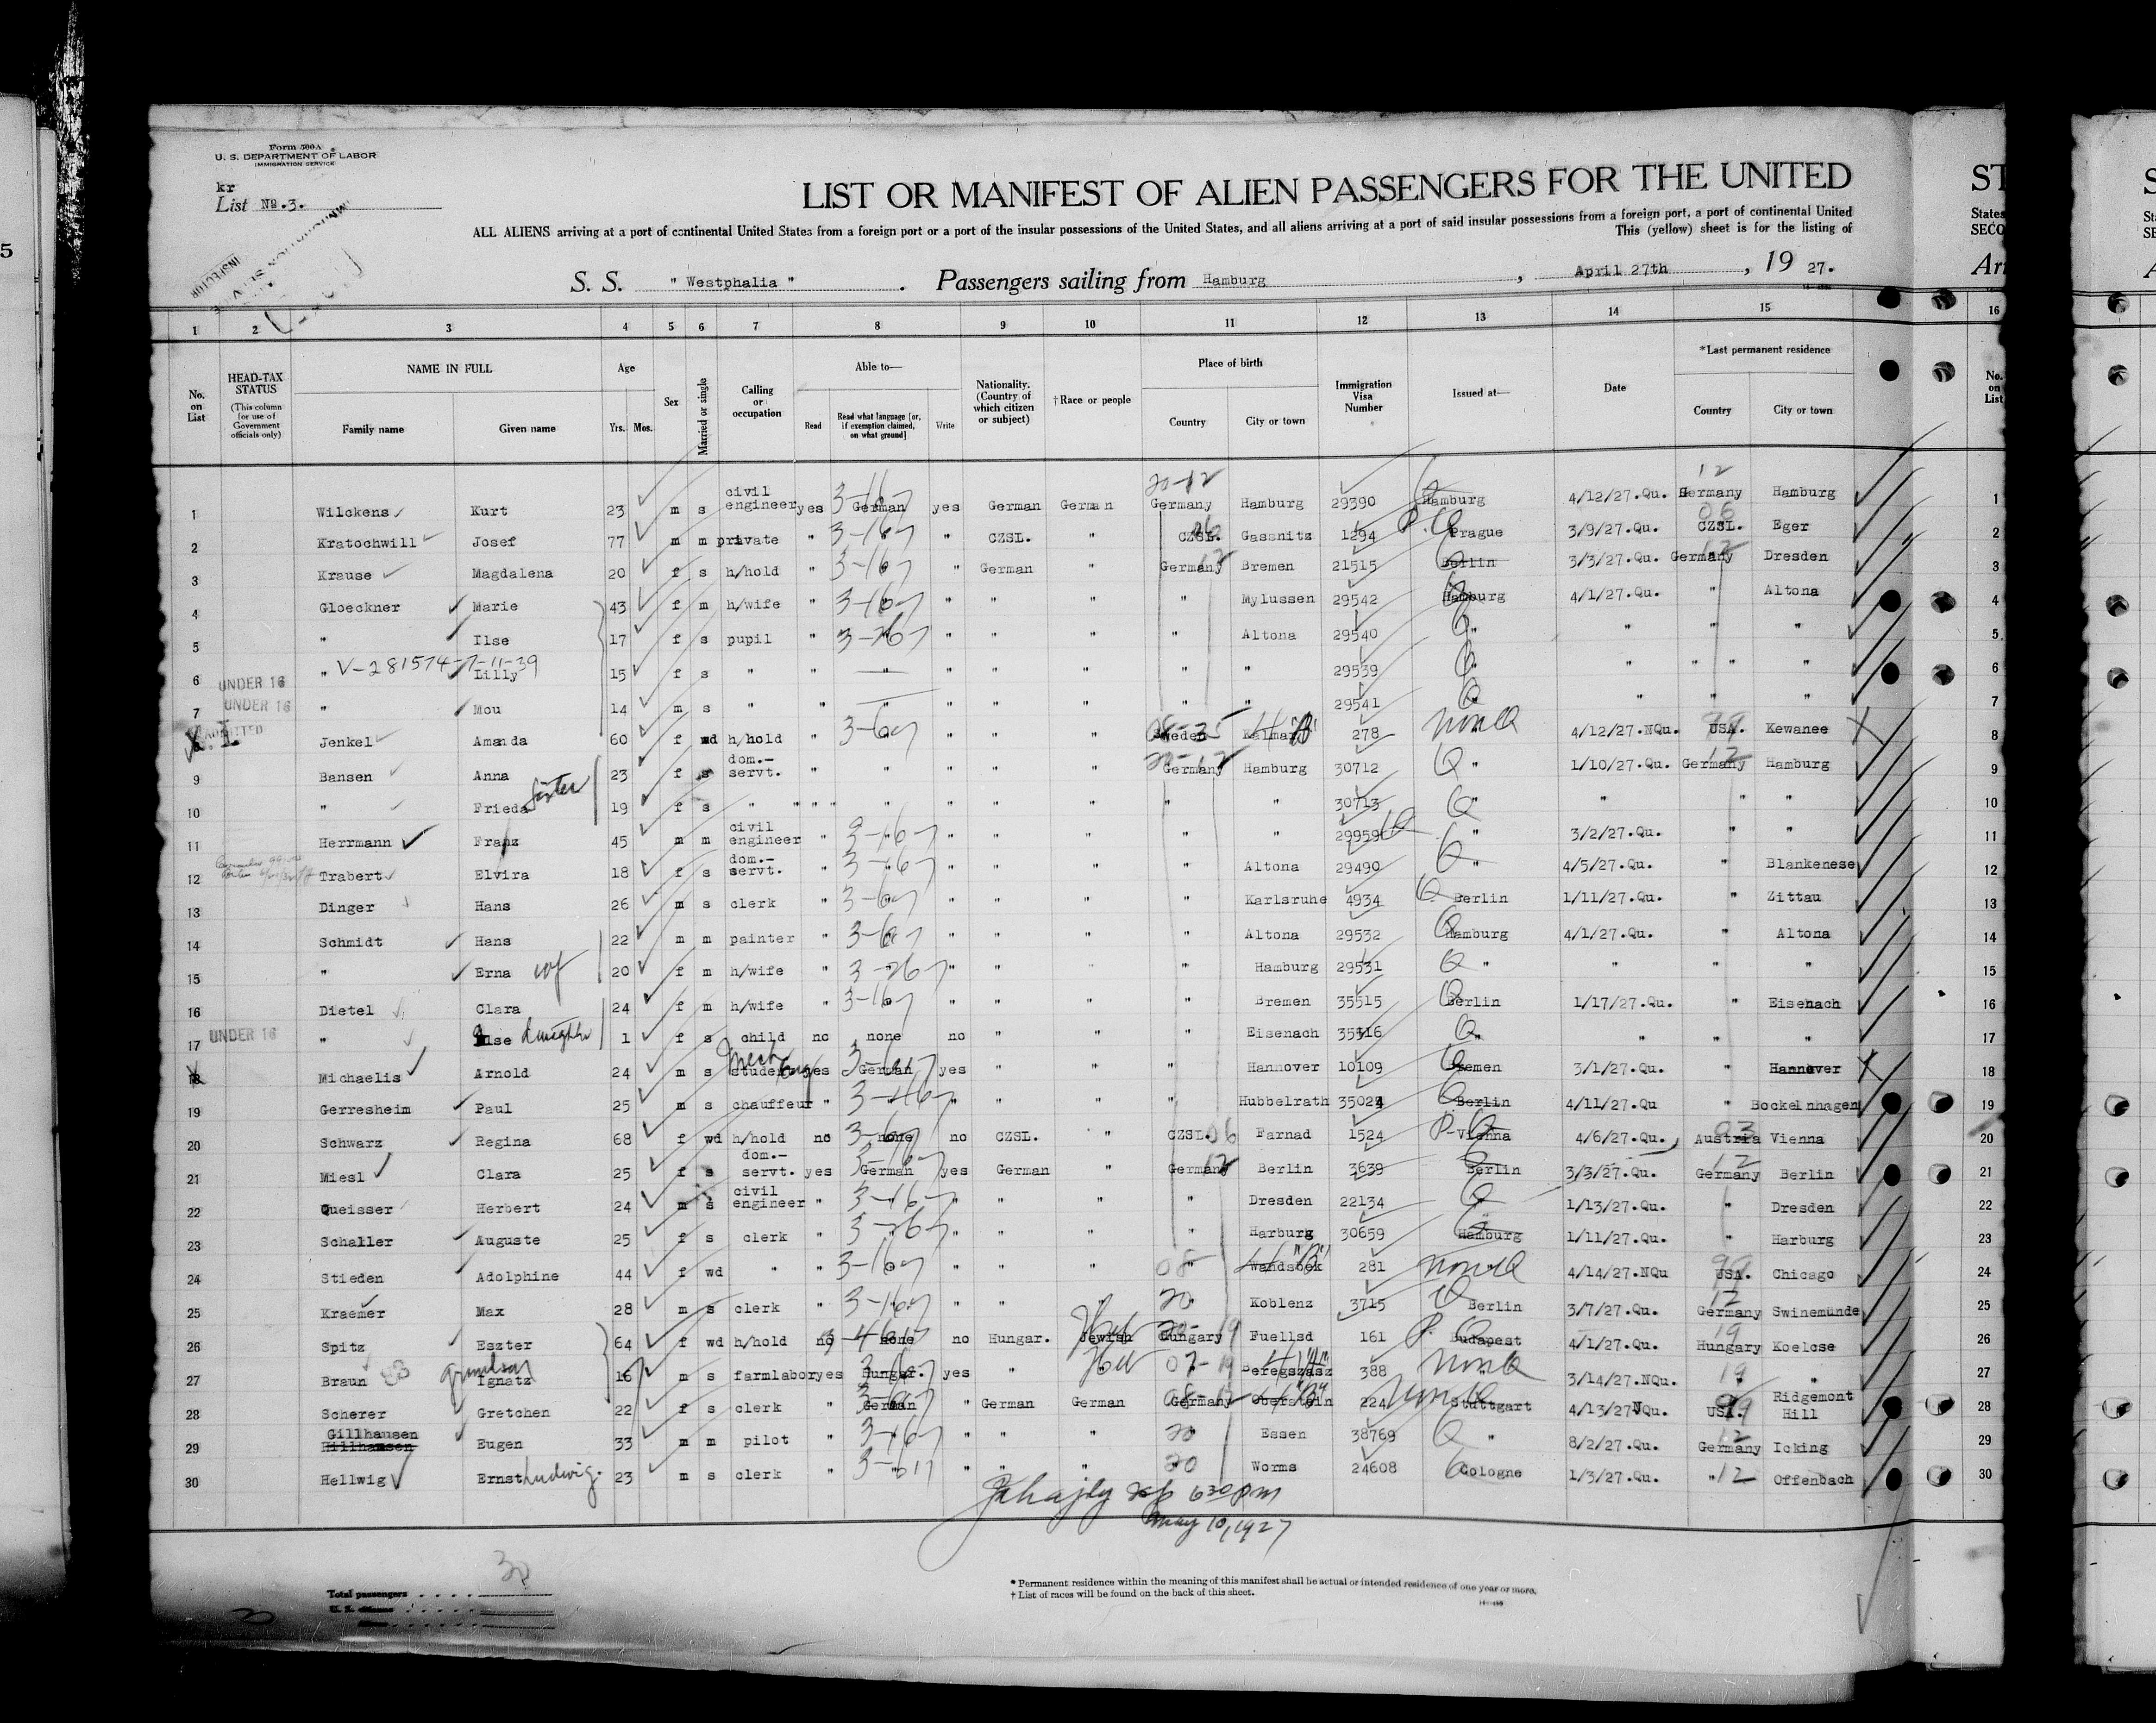 Form 500A
U. S. DEPARTMENT OF LABOR
IMMIGRATION SERVICE
kr
List No.3.
LIST OR MANIFEST OF ALIEN PASSENGERS FOR THE UNITED
ALL ALIENS arriving at a port of continental United States from a foreign port or a port of the insular possessions of the United States, and all aliens arriving at a port of said insular possessions from a foreign port, a port of continental United
This (yellow) sheet is for the listing of
S. S. "Westphalia". Passengers sailing from Hamburg, April 27th, 19 27.
1 2 3 4 5 6 7 8 9 10 11 12 13 14 15 16
No. on List
HEAD-TAX STATUS (This column for use of Government officials only)
NAME IN FULL Family name Given name
Age Yrs. Mos.
Sex
Married or single
Calling or occupation
Able to— Read Read what language [or, if exemption claimed, on what ground] Write
Nationality. (Country of which citizen or subject)
†Race or people
Place of birth Country City or town
Immigration Visa Number
Issued at—
Date
*Last permanent residence Country City or town
No. on List
1 Wilckens Kurt 23 m s civil engineer yes German yes German German Germany Hamburg 29390 Hamburg 4/12/27.Qu. Germany Hamburg 1
2 Kratochwill Josef 77 m m private " " " CZSL. " CZSL. Gassnitz 1294 Prague 3/9/27.Qu. CZSL. Eger 2
3 Krause Magdalena 20 f s h/hold " " " German " Germany Bremen 21515 Berlin 3/3/27.Qu. Germany Dresden 3
4 Gloeckner Marie 43 f m h/wife " " " " " " Mylussen 29542 Hamburg 4/1/27.Qu. " Altona 4
5 " Ilse 17 f s pupil " " " " " " Altona 29540 " " " " 5
V-281574-7-11-39
6 UNDER 16 " Lilly 15 f s " " " " " " " 29539 " " " 6
7 UNDER 16 " Mou 14 m s " " " " " " " 29541 " " " " 7
Jenkel Amanda 60 f wd h/hold " " " " Sweden Kalmar 278 " 4/12/27.NQu. USA. Kewanee 8
9 Bansen Anna 23 f s dom.-servt. " " " " " Germany Hamburg 30712 " 1/10/27.Qu. Germany Hamburg 9
10 " Frieda sister 19 f s " " " " " " " " 30713 " " " " 10
11 Herrmann Franz 45 m m civil engineer " " " " " " " 29959 " 3/2/27.Qu. " " 11
12 Trabert Elvira 18 f s dom.-servt. " " " " " " Altona 29490 " 4/5/27.Qu. " Blankenese 12
13 Dinger Hans 26 m s clerk " " " " " " Karlsruhe 4934 Berlin 1/11/27.Qu. " Zittau 13
14 Schmidt Hans 22 m m painter " " " " " " Altona 29532 Hamburg 4/1/27.Qu. " Altona 14
15 " Erna wf 20 f m h/wife " " " " " " Hamburg 29531 " " " " 15
16 Dietel Clara 24 f m h/wife " " " " " " Bremen 35515 Berlin 1/17/27.Qu. " Eisenach 16
17 UNDER 16 " Ilse daughter 1 f s child no none no " " " Eisenach 35516 " " " " 17
18 Michaelis Arnold 24 m s student yes German yes " " " Hannover 10109 Bremen 3/1/27.Qu. " Hannover 18
19 Gerresheim Paul 25 m s chauffeur " " " " " " Hubbelrath 35024 Berlin 4/11/27.Qu " Bockelnhagen 19
20 Schwarz Regina 68 f wd h/hold no none no CZSL. " CZSL. Farnad 1524 Vienna 4/6/27.Qu. Austria Vienna 20
21 Miesl Clara 25 f s dom.-servt. yes German yes German " Germany Berlin 3639 Berlin 3/3/27.Qu. Germany Berlin 21
22 Queisser Herbert 24 m s civil engineer " " " " " " Dresden 22134 " 1/13/27.Qu. " Dresden 22
23 Schaller Auguste 25 f s clerk " " " " " " Harburg 30659 Hamburg 1/11/27.Qu. " Harburg 23
24 Stieden Adolphine 44 f wd " " " " " " " Wandsbek 281 " 4/14/27.NQu USA. Chicago 24
25 Kraemer Max 28 m s clerk " " " " " " Koblenz 3715 Berlin 3/7/27.Qu. Germany Swinemunde 25
26 Spitz Eszter 64 f wd h/hold no none no Hungar. Jewish Hungary Fuellsd 161 Budapest 4/1/27.Qu. Hungary Koelcse 26
27 Braun Ignatz grandson 16 m s farmlabor yes Hungar. yes " " Beregszasz 388 " 3/14/27.NQu. " " 27
28 Scherer Gretchen 22 f s clerk " German " German German Germany Oberstein 224 Stuttgart 4/13/27NQu. USA. Ridgemont Hill 28
29 Gillhausen Hillhausen Eugen 33 m m pilot " " " " " " Essen 38769 " 8/2/27.Qu. Germany Icking 29
30 Hellwig Ernst Ludwig. 23 m s clerk " " " " " " Worms 24608 Cologne 1/3/27.Qu. " Offenbach 30
6 30 pm
May 10, 1927
Total passengers 30
* Permanent residence within the meaning of this manifest shall be actual or intended residence of one year or more.
† List of races will be found on the back of this sheet.